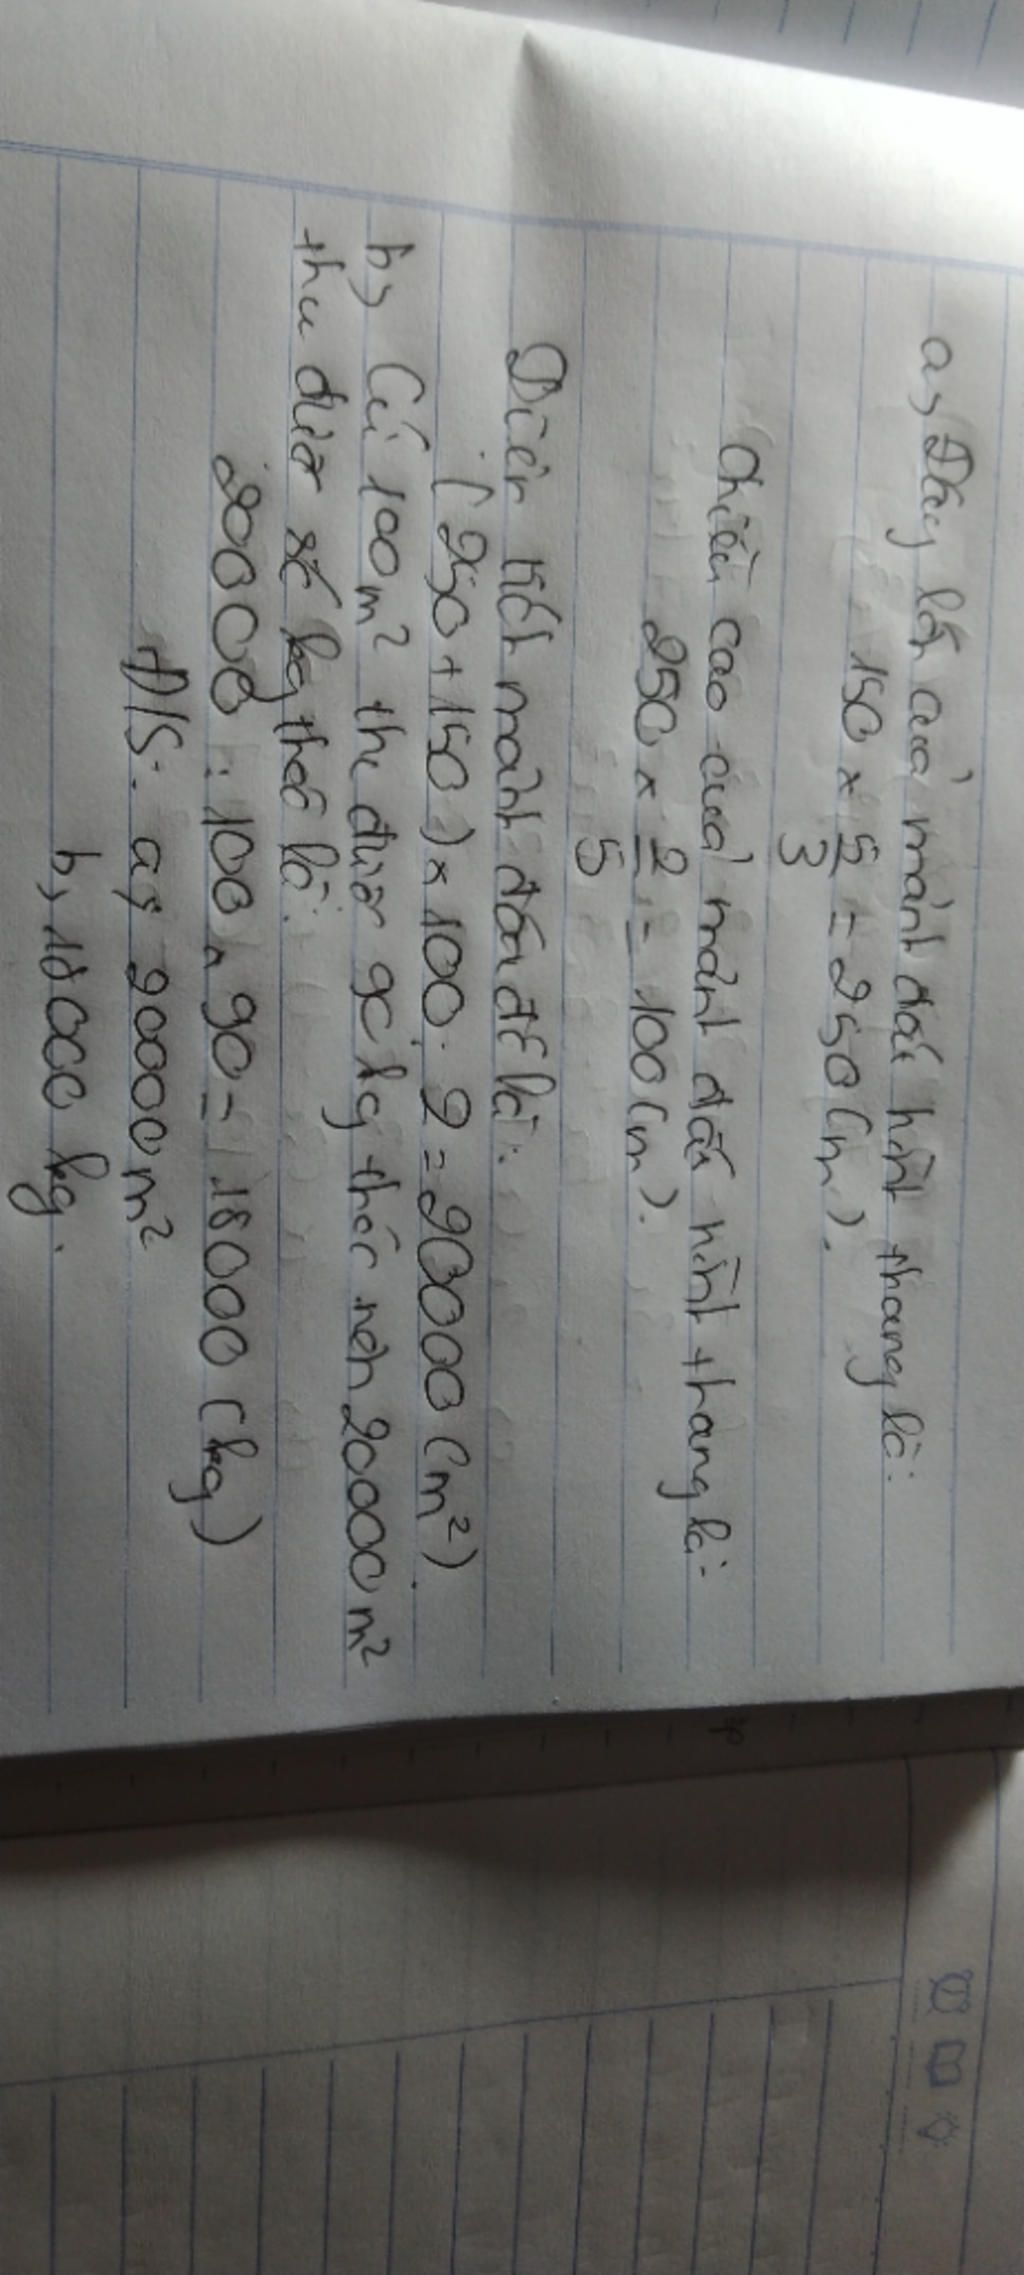 a, Đáy lớn của mảnh đất hình thang là:
150 × 5/3 = 250 (m).
Chiều cao của mảnh đất hình thang là:
250 × 2/5 = 100 (m).
Diện tích mảnh đất đó là:
(250 + 150) × 100 : 2 = 20000 (m²).
b, Cứ 100 m² thu được 90 kg thóc nên 20000 m²
thu được số kg thóc là:
20000 : 100 × 90 = 18000 (kg)
Đ/S: a, 20000 m²
b, 18000 kg.